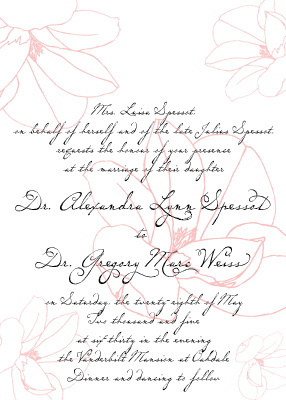 Mrs. Luisa Spessot
on behalf of herself and of the late Julius Spessot
requests the honour of your presence
at the marriage of their daughter
Dr. Alexandra Lynn Spessot
to
Dr. Gregory Marc Weiss
on Saturday, the twenty-eighth of May
Two thousand and five
at six thirty in the evening
the Vanderbilt Mansion at Oakdale
Dinner and dancing to follow